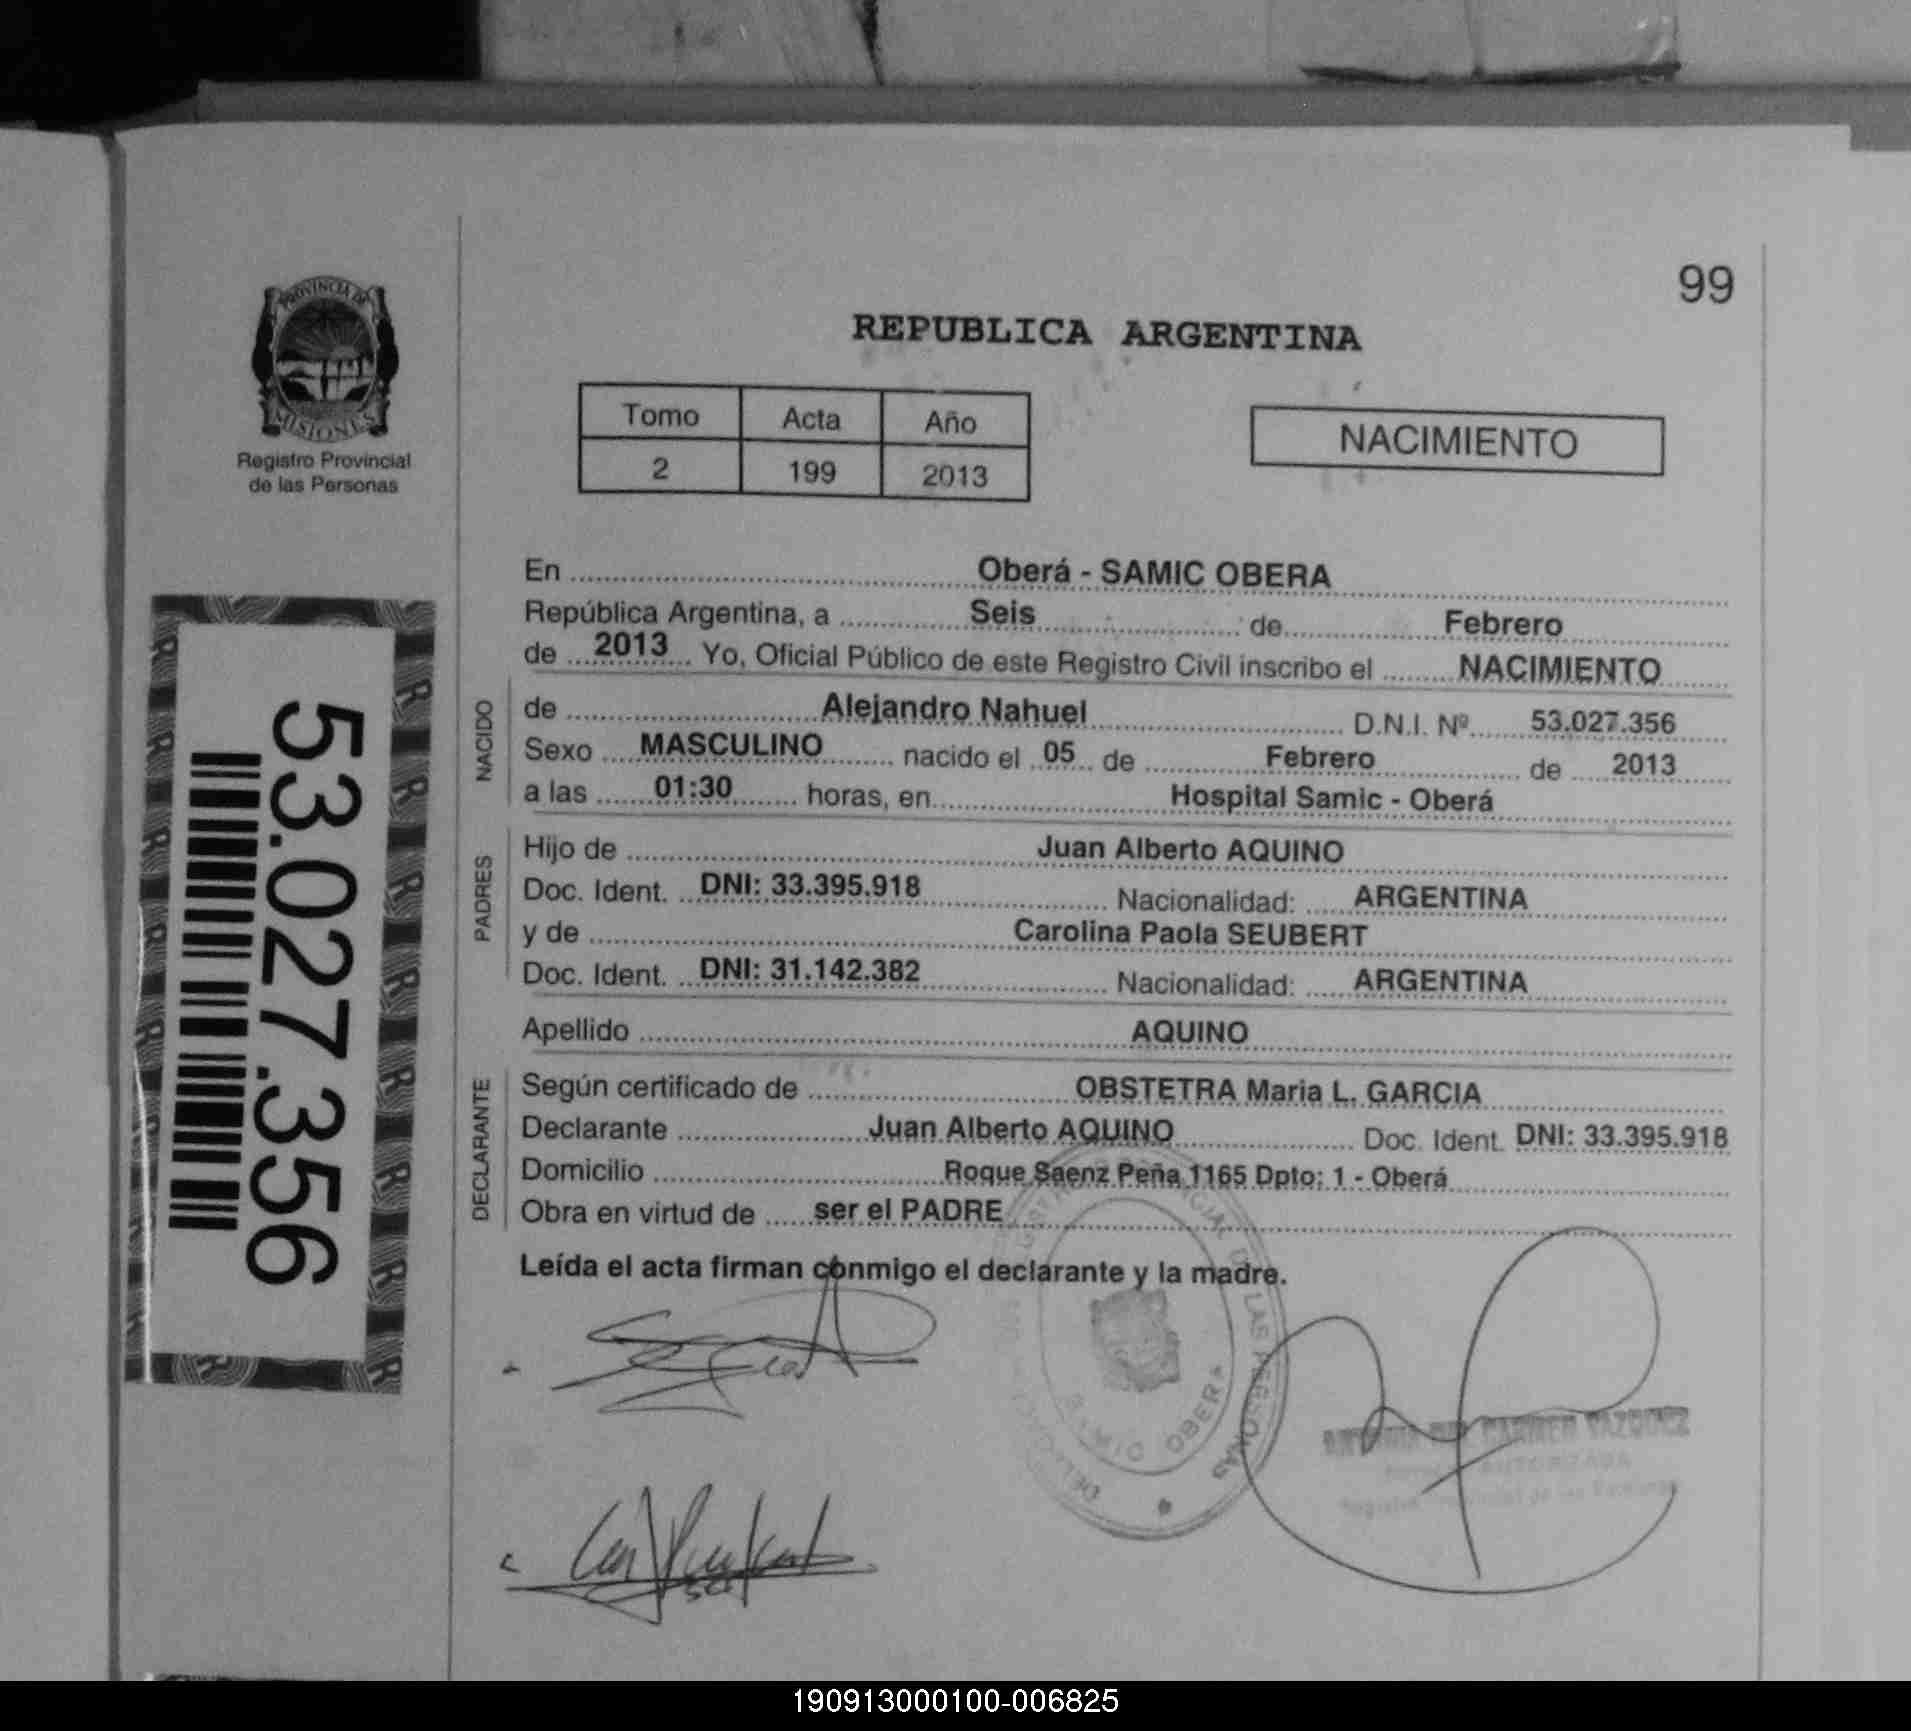 99
PROVINCIA DE
MISIONES
Registro Provincial
de las Personas
REPUBLICA ARGENTINA
Tomo Acta Año
2 199 2013
NACIMIENTO
53.027.356
En Oberá - SAMIC OBERA
República Argentina, a Seis de Febrero
de 2013 Yo, Oficial Público de este Registro Civil inscribo el NACIMIENTO
NACIDO
de Alejandro Nahuel D.N.I. Nº 53.027.356
Sexo MASCULINO nacido el 05 de Febrero de 2013
a las 01:30 horas, en Hospital Samic - Oberá
PADRES
Hijo de Juan Alberto AQUINO
Doc. Ident. DNI: 33.395.918 Nacionalidad: ARGENTINA
y de Carolina Paola SEUBERT
Doc. Ident. DNI: 31.142.382 Nacionalidad: ARGENTINA
Apellido AQUINO
DECLARANTE
Según certificado de OBSTETRA Maria L. GARCIA
Declarante Juan Alberto AQUINO Doc. Ident. DNI: 33.395.918
Domicilio Roque Saenz Peña 1165 Dpto: 1 - Oberá
Obra en virtud de ser el PADRE
Leída el acta firman conmigo el declarante y la madre.
LAS PERSONAS
CARMEN VAZQUEZ
AUTORIZADA
190913000100-006825